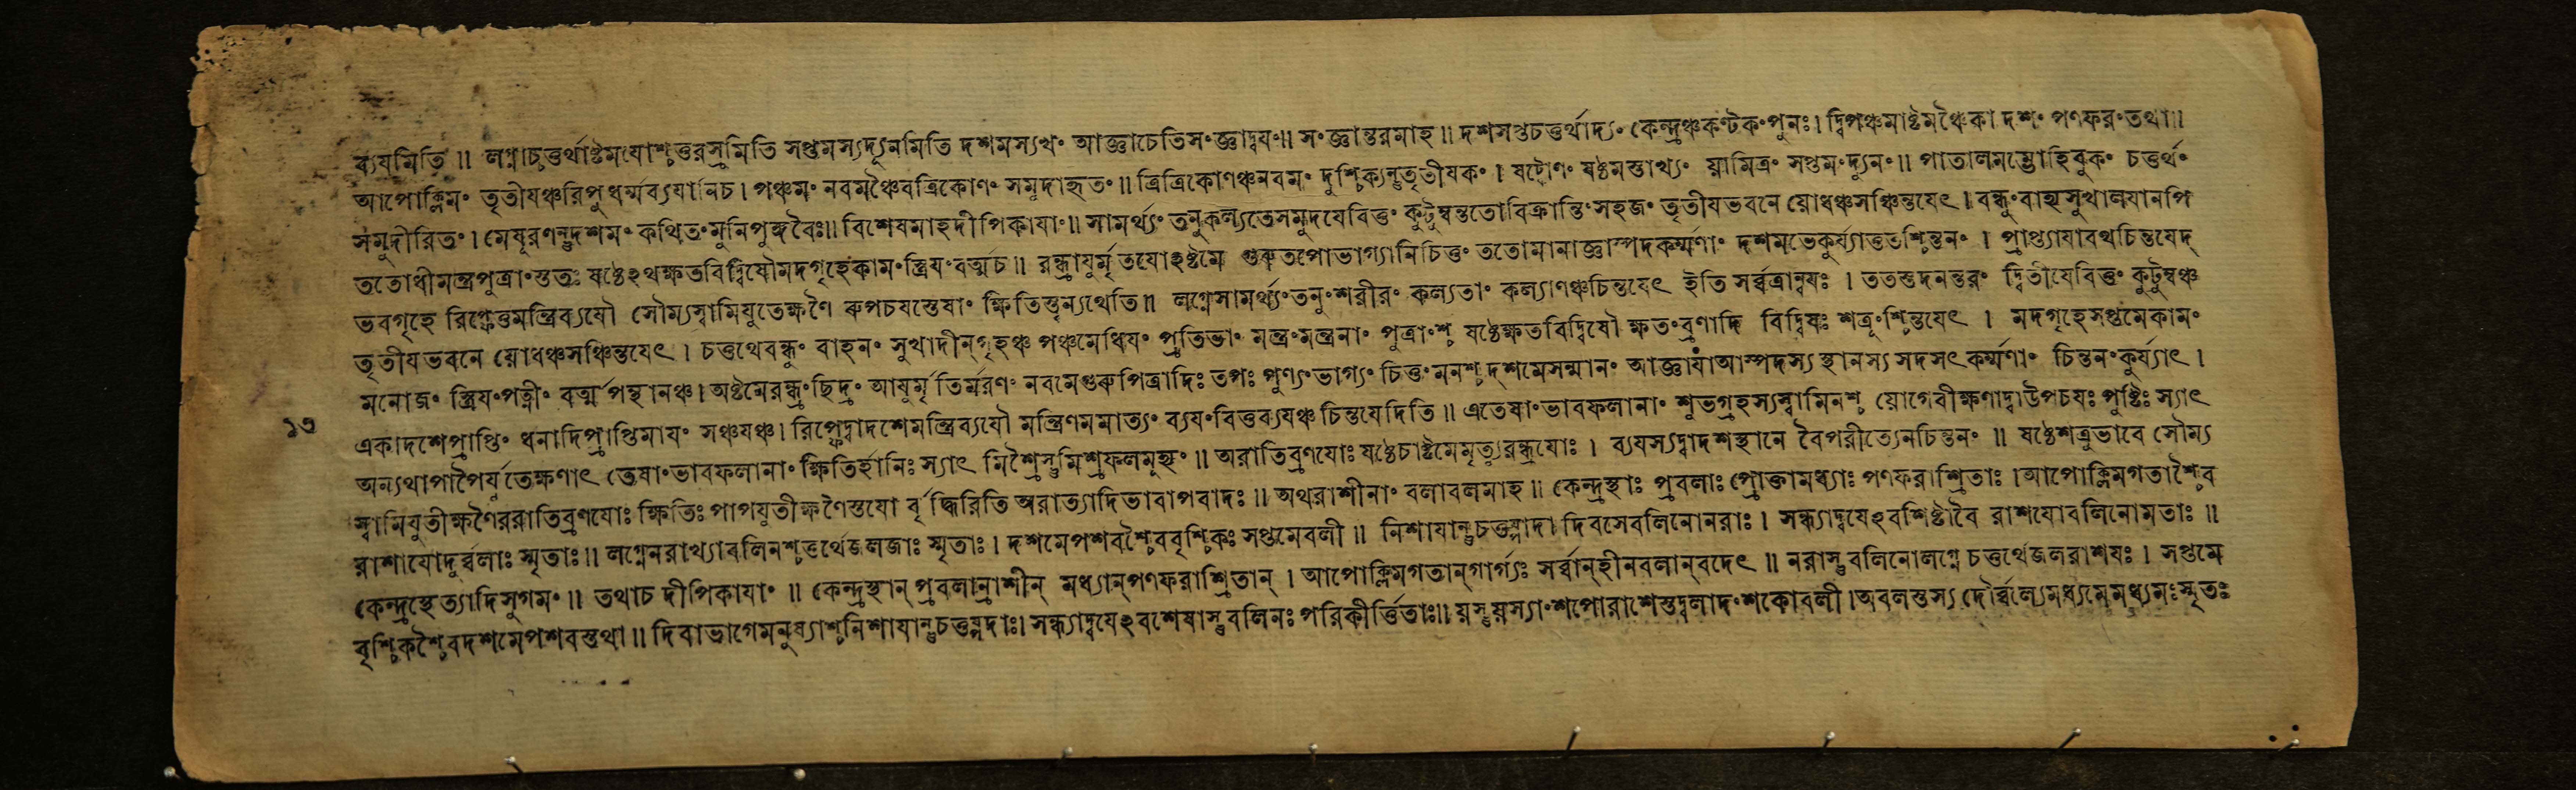 ব্যযমিতি ॥ লগ্নাচ্চতুর্থাষ্টমযোশ্চতুরস্রমিতি সপ্তমস্যদ্যূনমিতি দশমস্যখং আজ্ঞাচেতিসংজ্ঞাদ্বযং॥ সংজ্ঞান্তরমাহ ॥ দশসপ্তচতুর্থাদ্যং কেন্দ্রঞ্চকণ্টকংপুনঃ। দ্বিপঞ্চমাষ্টমঞ্চৈকাদশং পণফরংতথা॥
আপোক্লিমং তৃতীযঞ্চরিপুধর্ম্মব্যযানিচ। পঞ্চমং নবমঞ্চৈবত্রিকোণং সমুদাহৃতং ॥ ত্রিত্রিকোণঞ্চনবমং দুশ্চিক্যন্তুতৃতীযকং । ষট্টোণং ষষ্ঠমন্তাখ্যং য়ামিত্রং সপ্তমংদ্যুনং ॥ পাতালমম্ভোহিবুকং চতুর্থং
সমুদীরিতং। মেষূরণন্তুদশমং কথিতংমুনিপুঙ্গবৈঃ॥ বিশেষমাহদীপিকাযাং॥ সামর্থ্যং তনুকল্যতেসমুদযেবিত্তং কুটুম্বন্ততোবিক্রান্তিংসহজং তৃতীযভবনে য়োধঞ্চসঞ্চিন্তযেৎ। বন্ধুংবাহ্যসুখালযানপি
ততোধীমন্ত্রপুত্রাংস্ততঃ ষষ্ঠেঽথক্ষতবিদ্বিষৌমদগৃহেকামংস্ত্রিযংবর্ত্মচ ॥ রন্ধ্রাযুর্মৃতযোঽষ্টমে গুরুতপোভাগ্যানিচিত্তং ততোমানাজ্ঞাস্পদকর্ম্মণাং দশমভেকুর্য্যাত্ততশ্চিন্তনং । প্রাপ্ত্যাযাবথচিন্তযেদ্
ভবগৃহে রিপ্ফেতুমন্ত্রিব্যযৌ সৌম্যস্বামিযুতেক্ষণৈ রুপচযস্তেষাং ক্ষিতিস্তন্যথেতি॥ লগ্নেসামর্থ্যংতনুংশরীরং কল্যতাং কল্যাণঞ্চচিন্তযেৎ ইতি সর্ব্বত্রান্বযঃ । ততস্তদনন্তরং দ্বিতীযেবিত্তং কুটুম্বঞ্চ
তৃতীযভবনে য়োধঞ্চসঞ্চিন্তযেৎ। চতুথেবন্ধুং বাহনং সুখাদীন্‌গৃহঞ্চ পঞ্চমেধিযং প্রতিভাং মন্ত্রংমন্ত্রনাং পুত্রাংশ্চ ষষ্ঠেক্ষতবিদ্বিষৌ ক্ষতংব্রণাদি বিদ্বিষঃ শত্রূংশ্চিন্তযেৎ । মদগৃহেসপ্তমেকামং
মনোজং স্ত্রিযংপত্নীং বর্ত্মপন্থানঞ্চ। অষ্টমেরন্ধ্রংছিদ্রং আযুর্মৃতির্মরণং নবমেগুরুপিত্রাদিঃ তপঃ পুণ্যংভাগ্যং চিত্তংমনশ্চ দশমেসম্মানং আজ্ঞাযাআস্পদস্য স্থানস্য সদসৎ কর্ম্মণাং চিন্তনংকুর্য্যাৎ।
১৩ একাদশেপ্রাপ্তিং ধনাদিপ্রাপ্তিমাযং সঞ্চযঞ্চ। রিপ্ফেদ্বাদশেমন্ত্রিব্যযৌ মন্ত্রিণমমাত্যং ব্যযংবিত্তব্যযঞ্চ চিন্তযেদিতি॥ এতেষাংভাবফলানাং শুভগ্রহস্যস্বামিনশ্চ য়োগেবীক্ষণাদ্বাউপচযঃ পুষ্টিঃ স্যাৎ
অন্যথাপাপৈর্যুতেক্ষণাৎ তেষাংভাবফলানাং ক্ষিতির্হানিঃ স্যাৎ মিশ্রৈস্তুমিশ্রফলমূহ্যং ॥ অরাতিব্রণযোঃ ষষ্ঠেচাষ্টমেমৃত্যুরন্ধ্রযোঃ । ব্যযস্যদ্বাদশস্থানে বৈপরীত্যেনচিন্তনং ॥ ষষ্ঠেশত্রুভাবে সৌম্য
স্বামিযুতীক্ষণৈররাতিব্রণযোঃ ক্ষিতিঃ পাপযুতীক্ষণৈস্তযো র্বৃদ্ধিরিতি অরাত্যাদিভাবাপবাদঃ॥ অথরাশীনাং বলাবলমাহ॥ কেন্দ্রস্থাঃ প্রবলাঃ প্রোক্তামধ্যাঃ পণফরাশ্রিতাঃ।আপোক্লিমগতাশ্চৈব
রাশাযোদুর্ব্বলাঃ স্মৃতাঃ॥ লগ্নেনরাখ্যাবলিনশ্চতুর্থেজলজাঃ স্মৃতাঃ। দশমেপশবশ্চৈববৃশ্চিকঃ সপ্তমেবলী॥ নিশাযান্তুচতুষ্পাদা দিবসেবলিনোনরাঃ। সন্ধ্যাদ্বযেঽবশিষ্টাবৈ রাশযোবলিনোমতাঃ॥
কেন্দ্রস্থেত্যাদিসুগমং॥ তথাচ দীপিকাযাং ॥ কেন্দ্রস্থান্ প্রবলান্রাশীন্ মধ্যান্‌পণফরাশ্রিতান্ । আপোক্লিমগতান্‌গার্গ্যঃ সর্ব্বান্‌হীনবলান্‌বদেৎ ॥ নরাস্তুবলিনোলগ্নে চতুর্থেজলরাশযঃ । সপ্তমে
বৃশ্চিকশ্চৈবদশমেপশবস্তথা॥ দিবাভাগেমনুষ্যাশ্চনিশাযান্তুচতুষ্পদাঃ। সন্ধ্যাদ্বযেঽবশেষাস্তুবলিনঃ পরিকীর্ত্তিতাঃ॥ য়স্তুয়স্যাংশপোরাশেস্তদ্বলাদংশকোবলী।অবলস্তস্য দৌর্ব্বল্যেমধ্যমেমধ্যমঃস্মৃতঃ